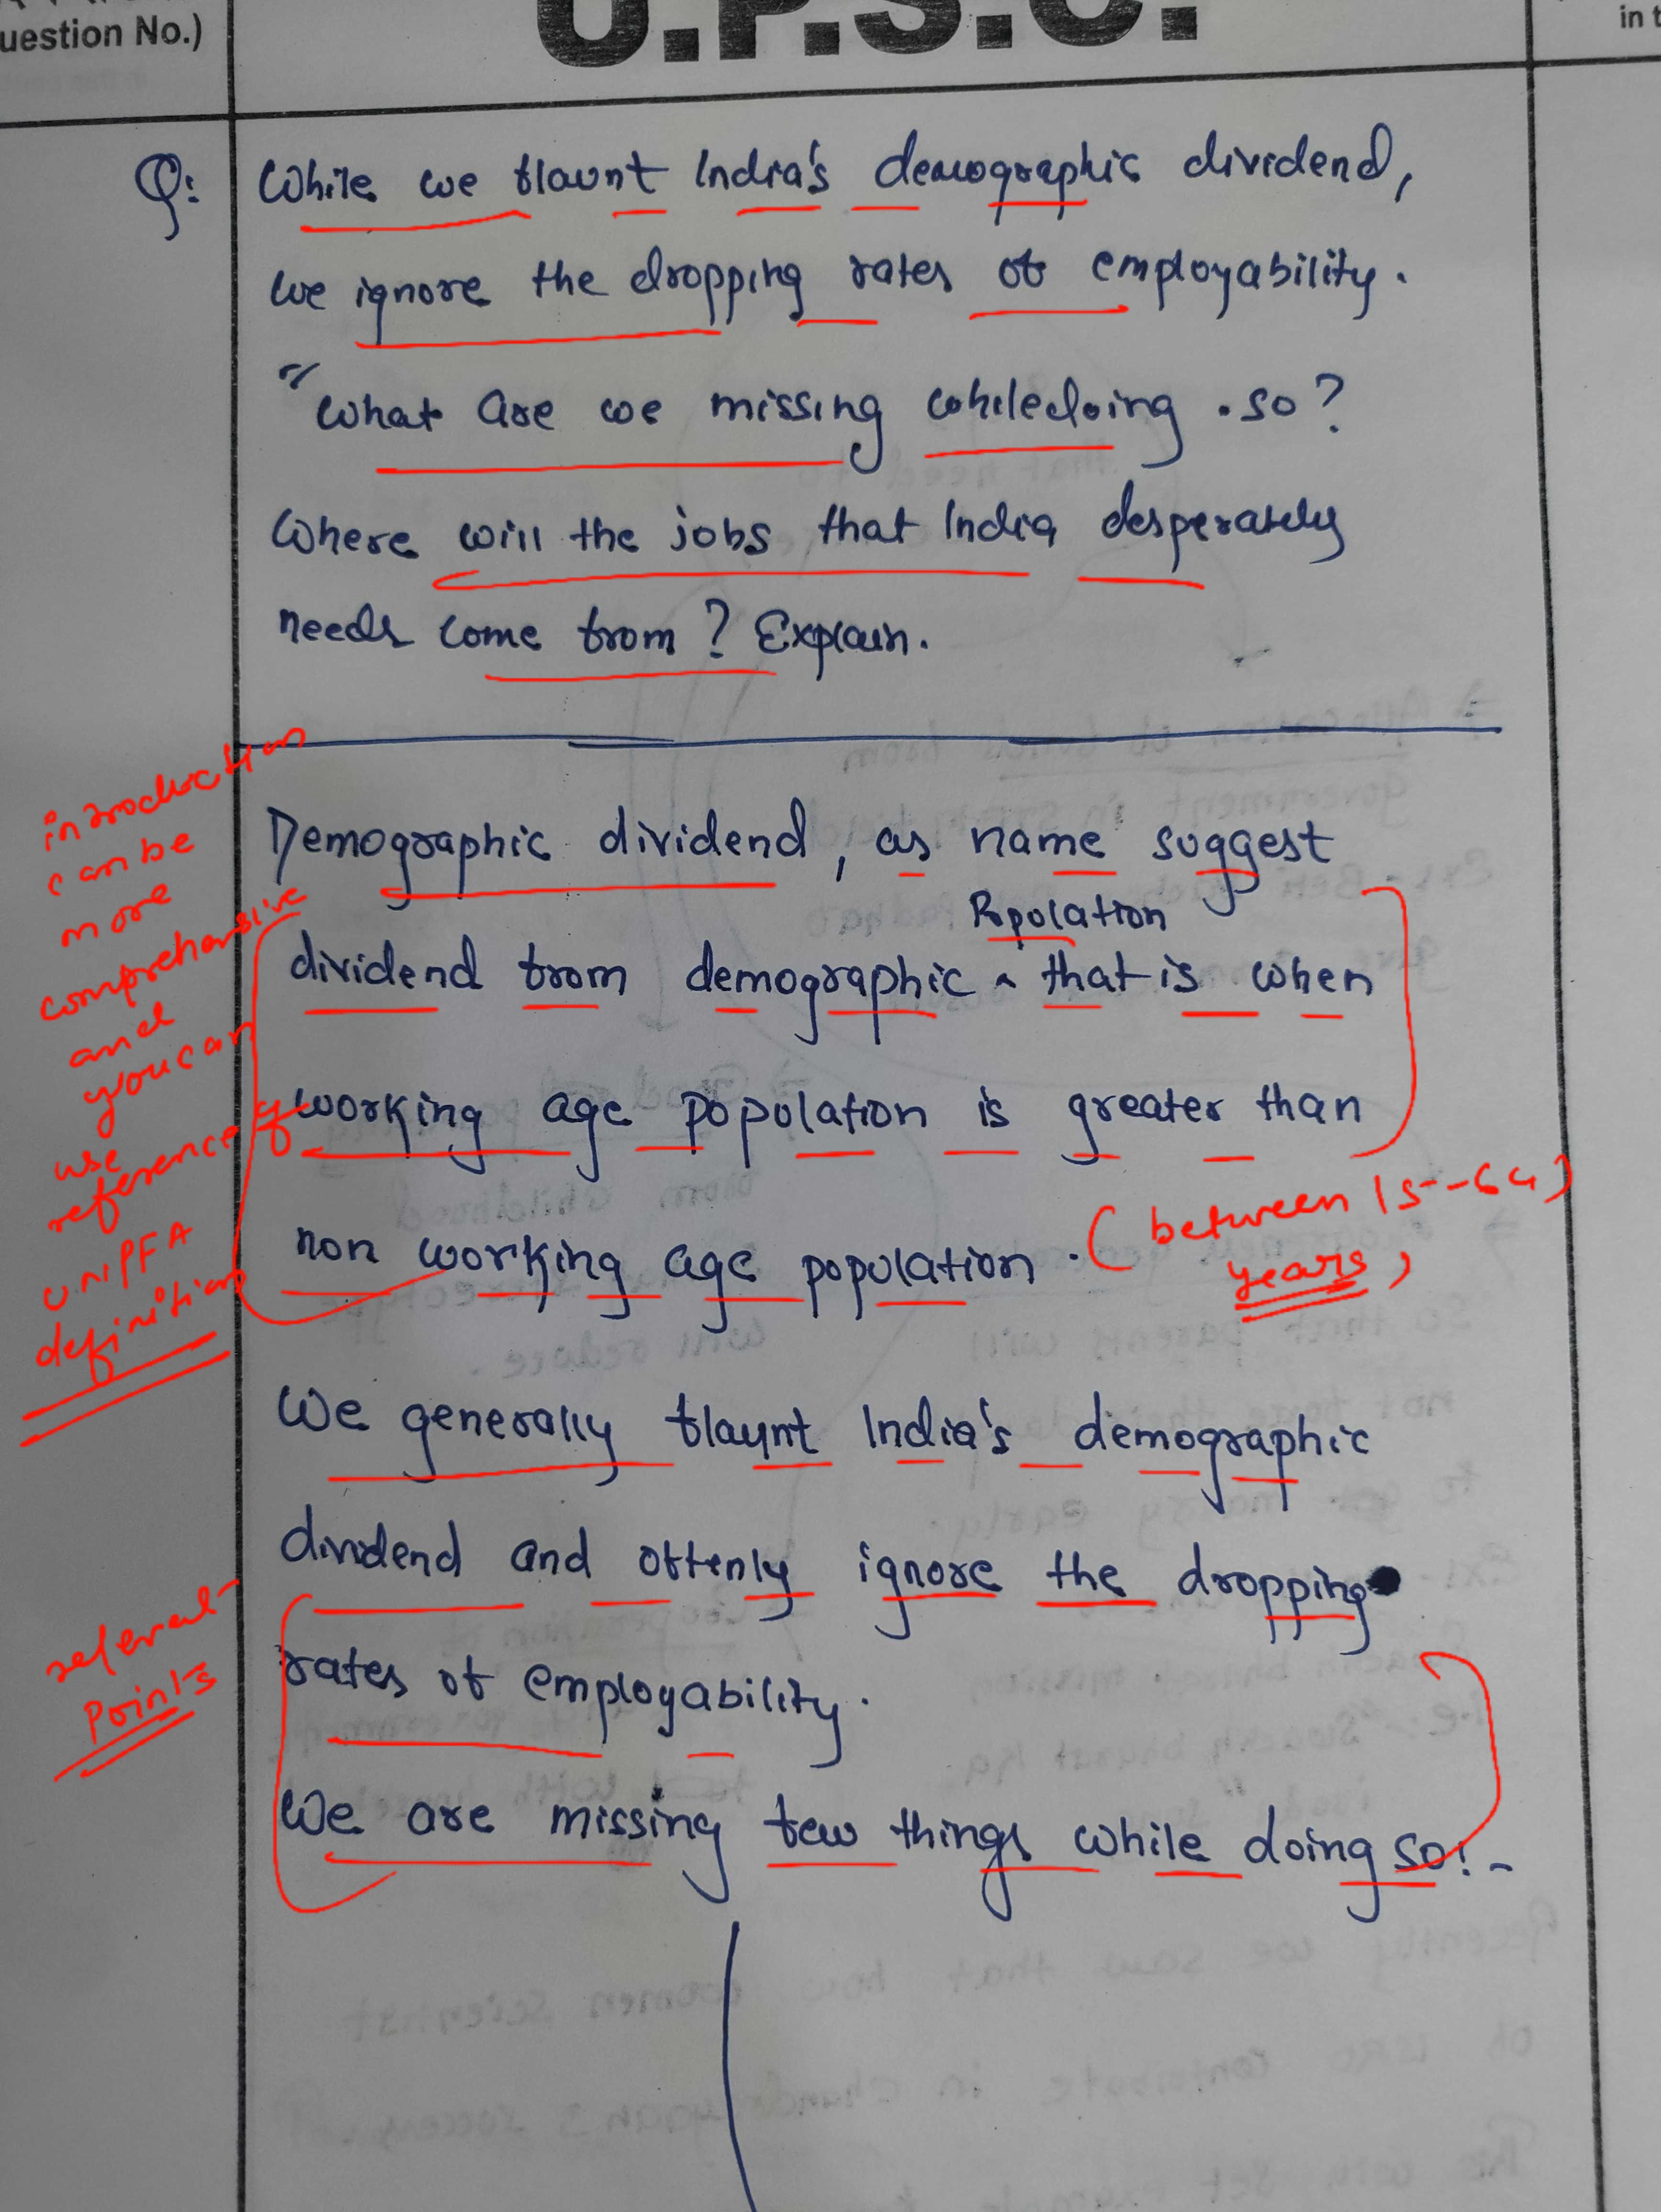 uestion No.)
U.P.S.C.
in t
Q: While we flaunt India's demographic dividend,
we ignore the dropping rates of employability.
"What are we missing while doing so?
Where will the jobs that India desperately
needs come from? Explain.
introduction
can be
more
comprehensive
and
you can
use
reference of
UNPFA
definition
Demographic dividend, as name suggest
Population
dividend from demographic ^ that is when
working age population is greater than
non working age population.
(between 15-64)
years)
We generally flaunt India's demographic
dividend and oftenly ignore the dropping
rates of employability.
relevant
points
We are missing few things while doing so:-